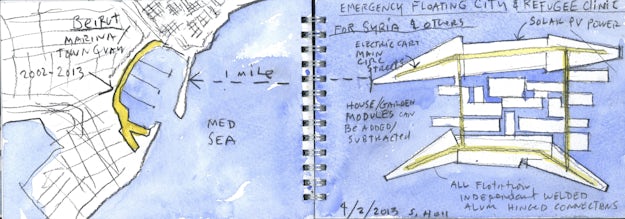 BEIRUT
MARINA
TOWN QUAY
2002-2013
1 MILE
MED
SEA
EMERGENCY FLOATING CITY & REFUGEE CLINIC
FOR SYRIA & OTHERS
SOLAR PV POWER
ELECTRIC CART
MAIN
CIRC
STREETS
HOUSE/GARDEN
MODULES CAN
BE ADDED/
SUBTRACTED
ALL FLOTATION
INDEPENDENT WELDED
ALUM HINGED CONNECTIONS
4/2/2013 S. Holl